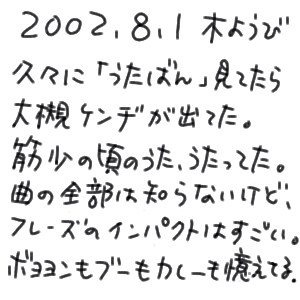 2002.8.1 木ようび
久々に「うたばん」見てたら
大槻ケンヂが出てた。
筋少の頃のうた、うたってた。
曲の全部は知らないけど、
フレーズのインパクトはすごい。
ボヨヨンもブーもカレーも憶えてる。